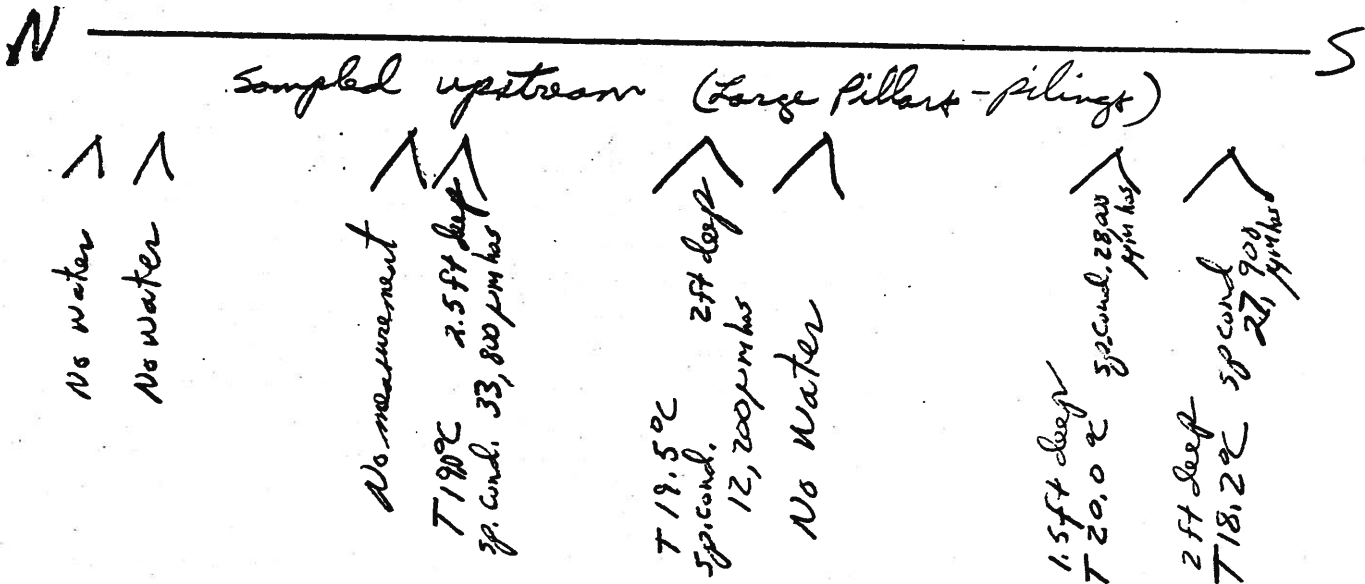 N S
Sampled upstream (Large Pillars - pilings)
No water
No water
No measurement
T 19.0°C 2.5 ft deep
sp. cond. 33,800 µmhos
T 19.5°C 2 ft deep
sp. cond.
12,200 µmhos
No Water
1.5 ft deep
T 20.0 °C sp. cond. 28,000
µmhos
2 ft deep
T 18.2°C sp cond
27,900
µmhos